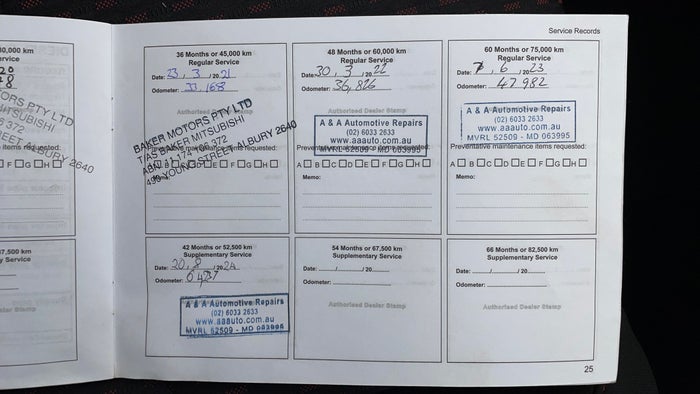 Service Records
30,000 km
ervice
ORS PTY LTD
MITSUBISHI
6 372
STREET, ALBURY 2640
e items requested:
F G H
7,500 km
y Service
Dealer Stamp
36 Months or 45,000 km
Regular Service
Date: 23 / 3 / 20 21
Odometer: 33,168
BAKER MOTORS PTY LTD
T/AS BAKER MITSUBISHI
ABN 11 174 196 372
499 YOUNG STREET, ALBURY 2640
D E F G H
Memo:
48 Months or 60,000 km
Regular Service
Date: 30 / 3 / 20 22
Odometer: 36,826
Authorised Dealer Stamp
A & A Automotive Repairs
(02) 6033 2633
www.aaauto.com.au
MVRL 52509 - MD 063995
Preventative maintenance items requested:
A B C D E F G H
Memo:
60 Months or 75,000 km
Regular Service
Date: 7 / 6 / 20 23
Odometer: 47982
A & A Automotive Repairs
(02) 6033 2633
www.aaauto.com.au
MVRL 52509 - MD 063995
Preventative maintenance items requested:
A B C D E F G H
Memo:
42 Months or 52,500 km
Supplementary Service
Date: 20 / 8 / 20 24
Odometer:
A & A Automotive Repairs
(02) 6033 2633
www.aaauto.com.au
MVRL 52509 - MD 063995
54 Months or 67,500 km
Supplementary Service
Date: / / 20
Odometer:
Authorised Dealer Stamp
66 Months or 82,500 km
Supplementary Service
Date: / / 20
Odometer:
Authorised Dealer Stamp
25